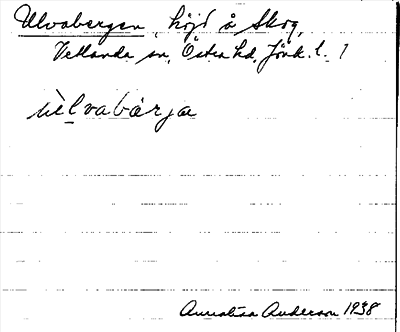 Ulvabergen, höjd å Skog,
Vetlanda sn, Östra hd, Jönk. l. 1
ùlvabärja
Annalisa Anderson 1938